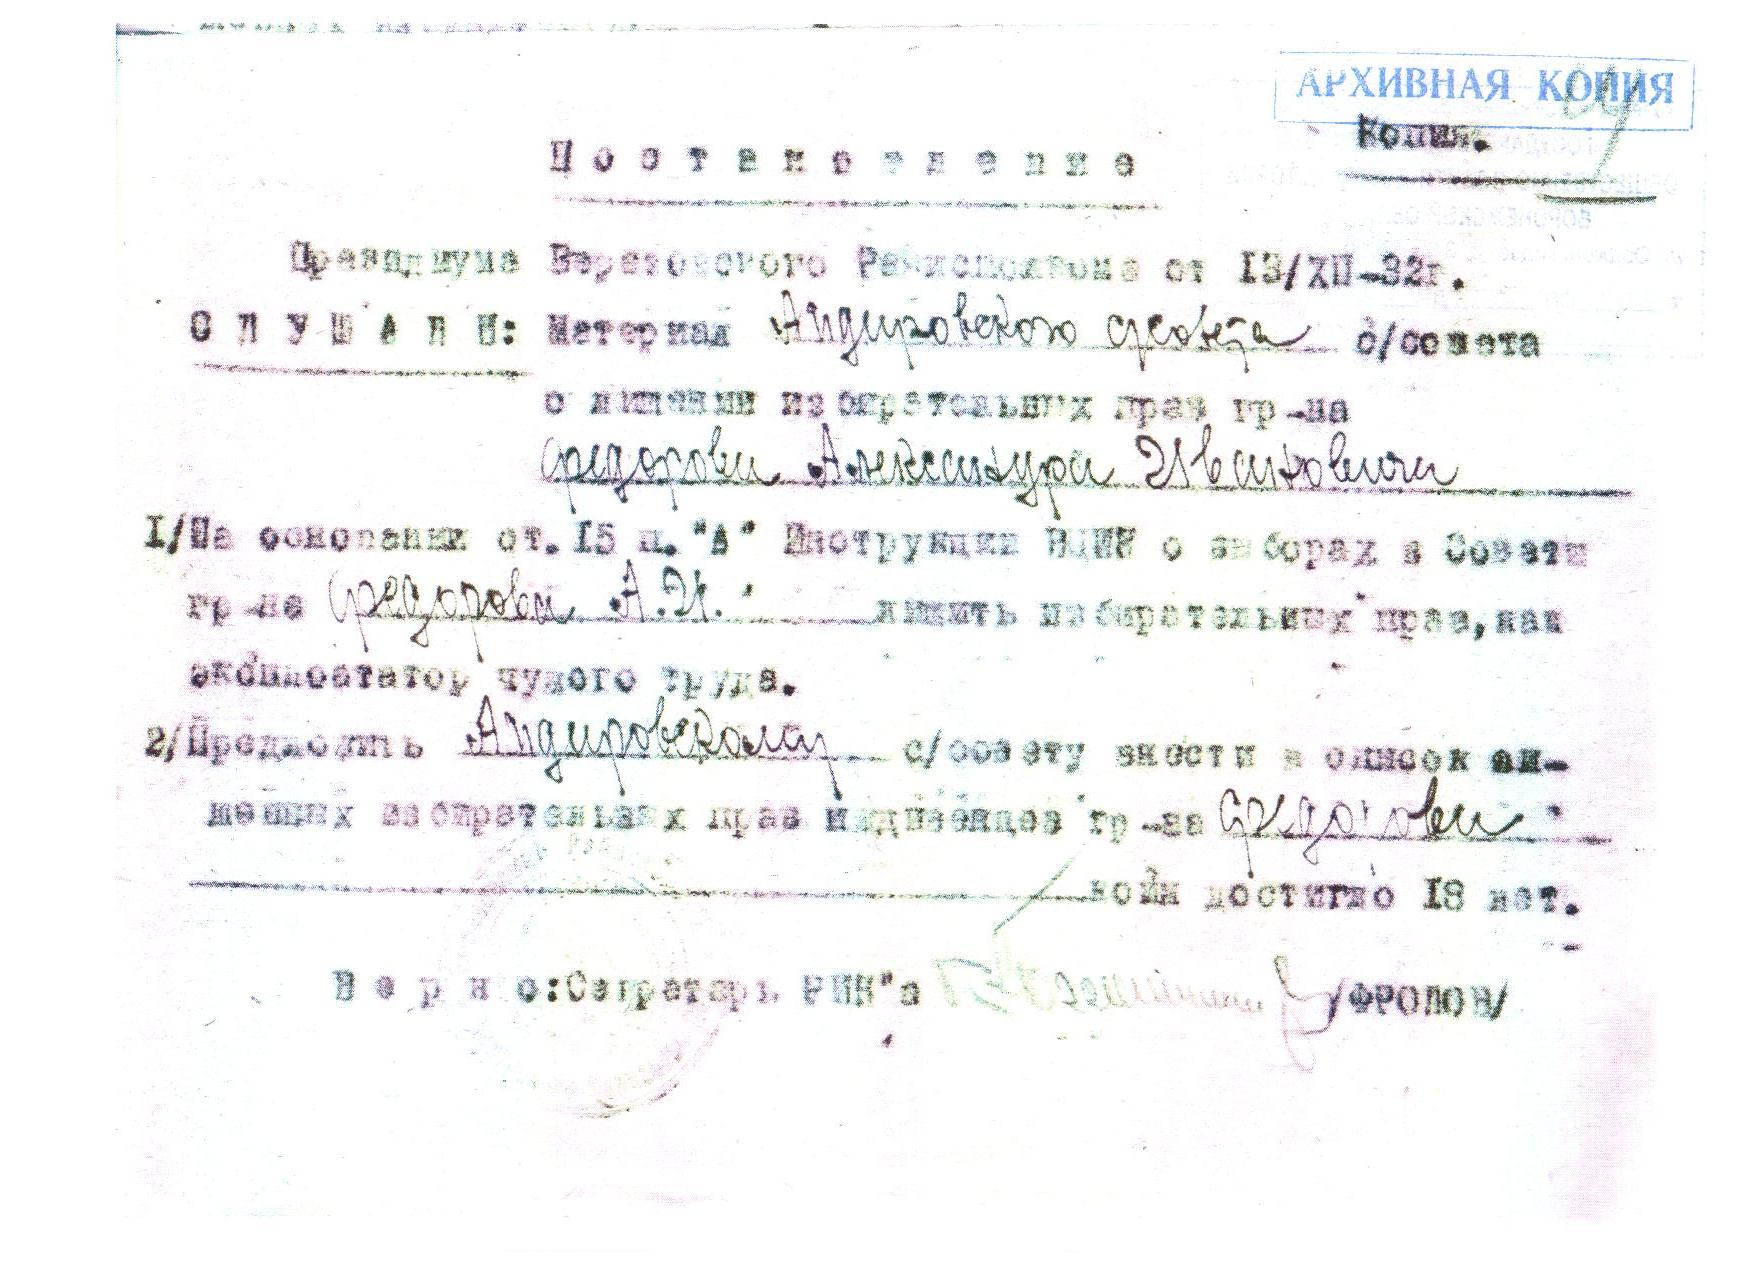 АРХИВНАЯ КОПИЯ
Копия.
Постановление
Президиума Березовского Райисполкома от 13/XII-32г.
СЛУШАЛИ: Материал Андировского с/совета
о лишении избирательных прав гр-на
Федорова Александра Ивановича
1/На основании ст. 15 п. "А" Инструкции ВЦИК о выборах в Советы
гр-на Федорова А.И. лишить избирательных прав, как
эксплоататор чужого труда.
2/Предложить Андировскому с/совету внести в список ли-
шенных избирательных прав иждивенцев гр-на Федорова
коим достигло 18 лет.
Верно: Секретарь РИК"а /ФРОЛОВ/